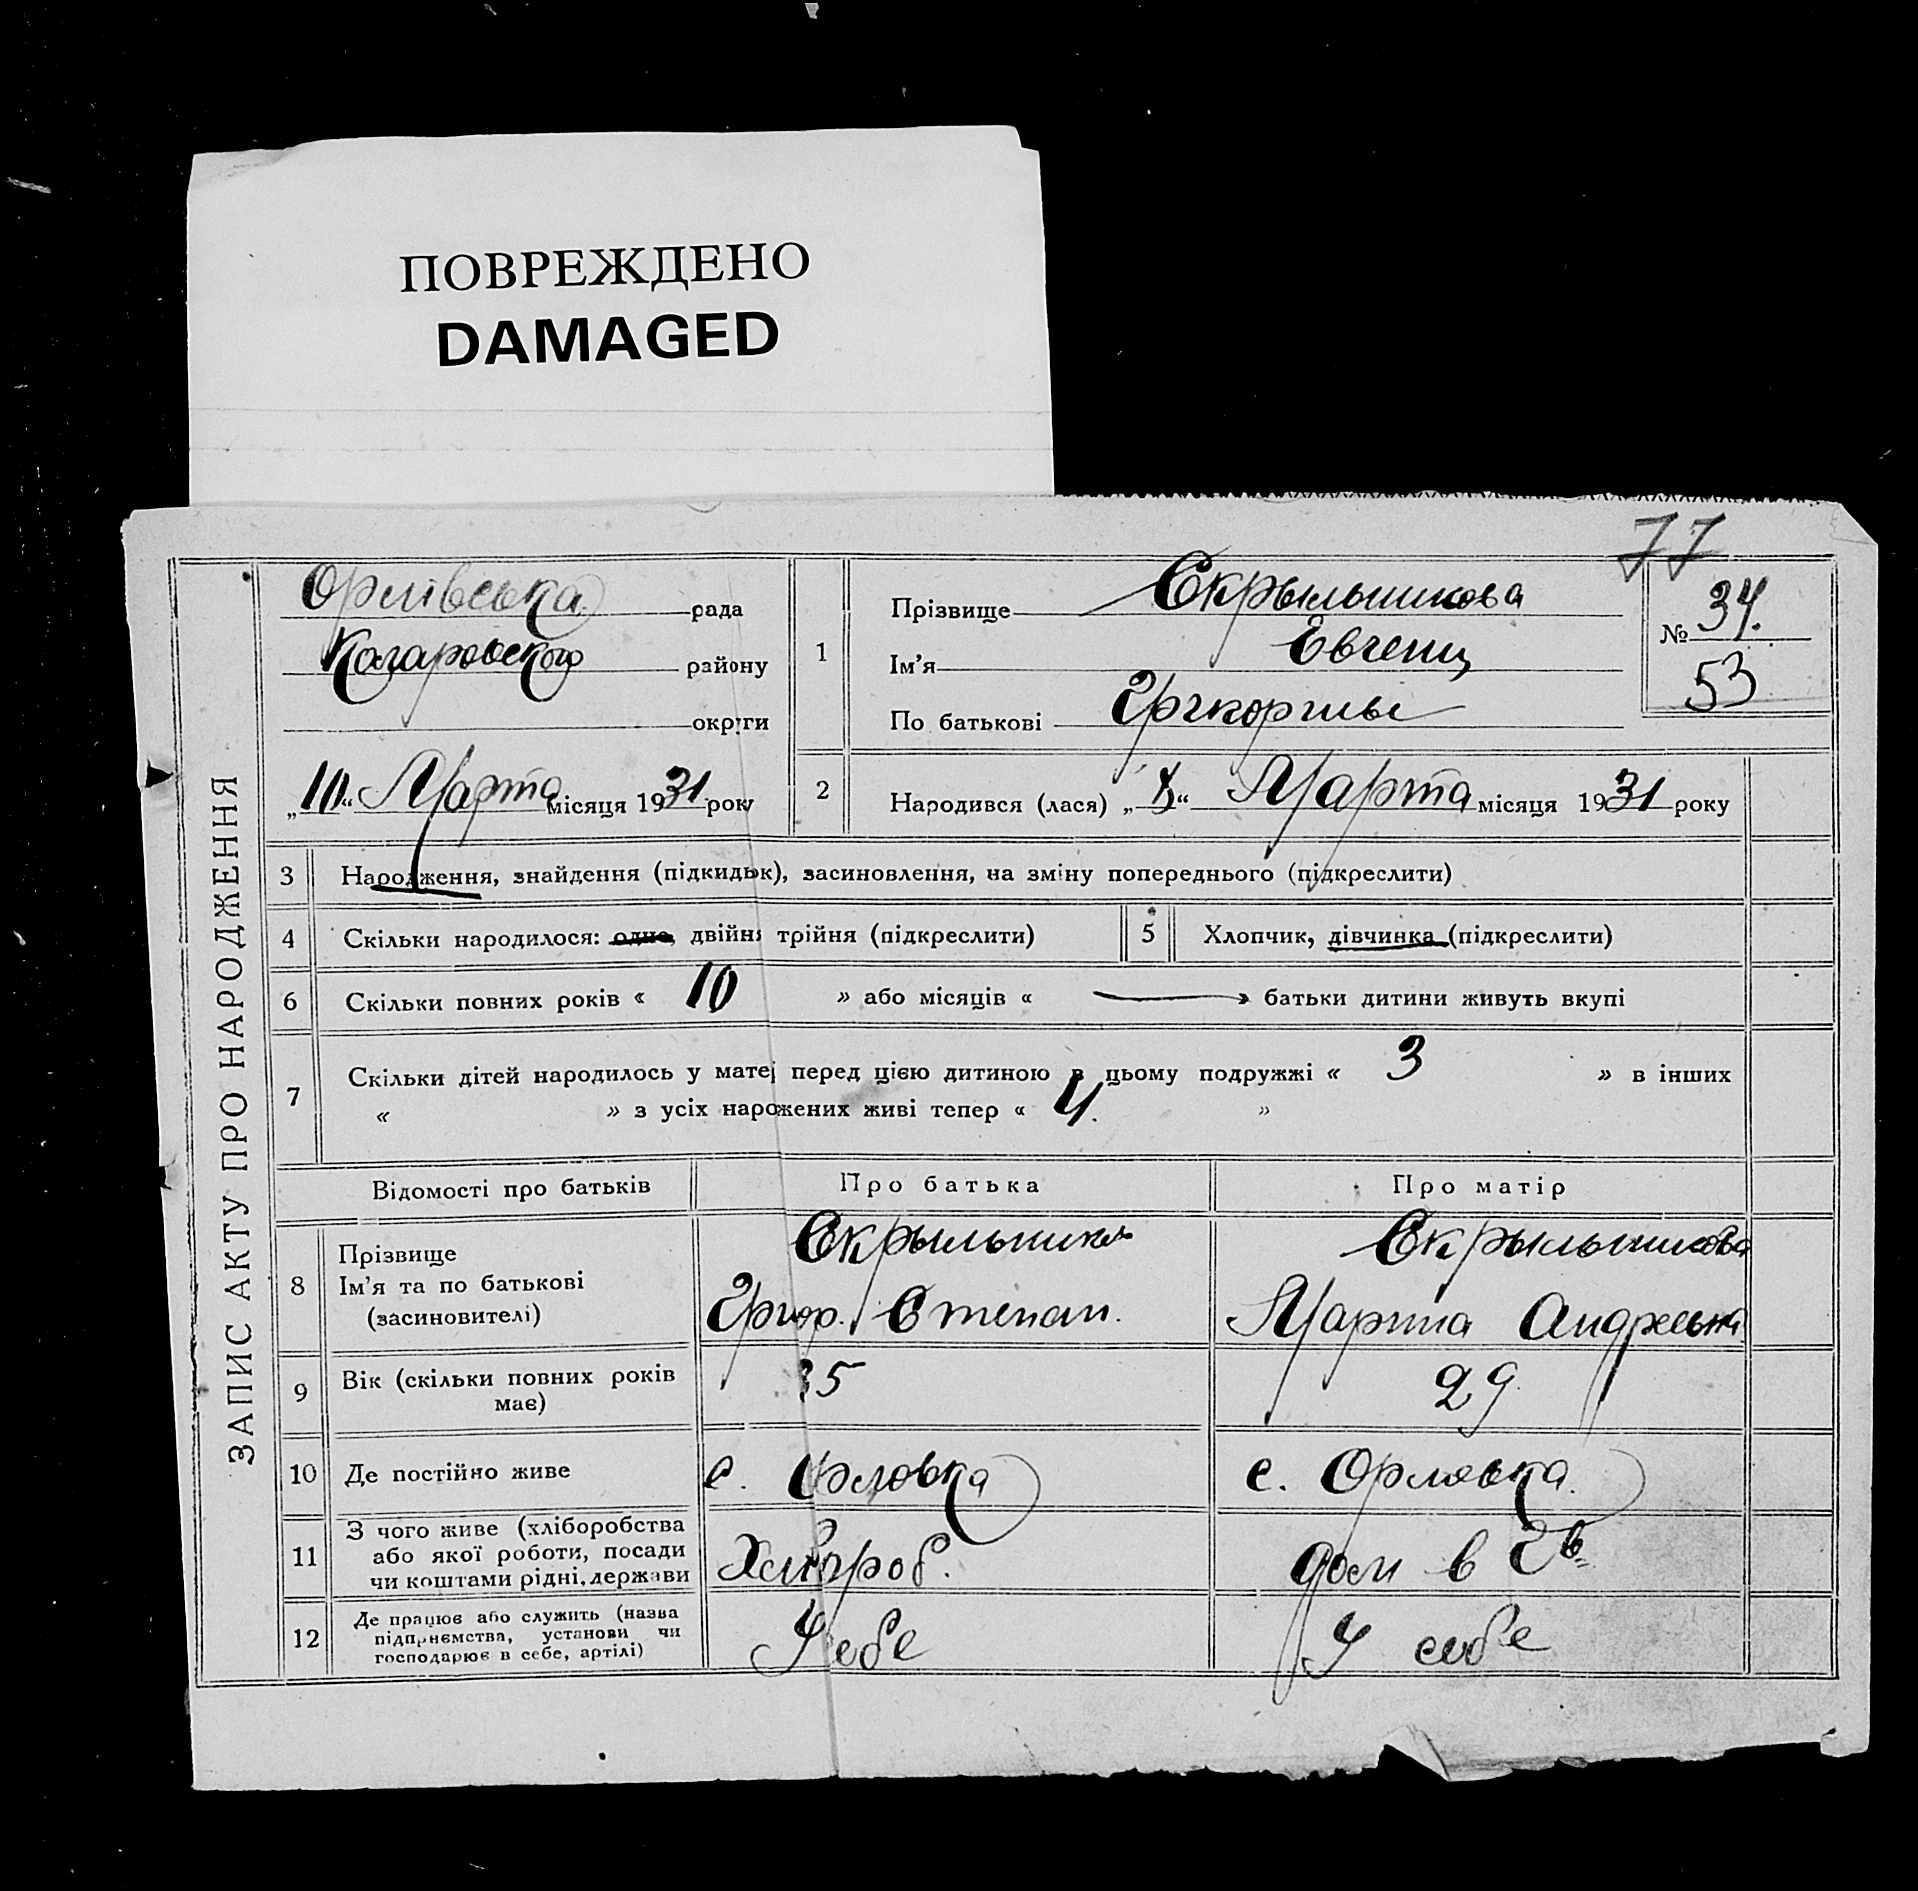 ПОВРЕЖДЕНО
DAMAGED
77
ЗАПИС АКТУ ПРО НАРОДЖЕННЯ
Орлівська рада
району
округи
„10“ Марта місяця 1931 року
1
Прізвище Скрыльникова
Ім’я
По батькові
№ 34.
53
2
Народився (лася) „ “ Марта місяця 1931 року
3 Народження, знайдення (підкидьк), засиновлення, на зміну попереднього (підкреслити)
4 Скільки народилося: одно, двійня трійня (підкреслити)
5 Хлопчик, дівчинка (підкреслити)
6 Скільки повних років « 10 » або місяців « — » батьки дитини живуть вкупі
7 Скільки дітей народилось у матері перед цією дитиною в цьому подружжі « 3 » в інших
« » з усіх нарожених живі тепер « 4. »
Відомості про батьків Про батька Про матір
8 Прізвище
Ім’я та по батькові
(засиновителі)
Скрыльников
Григор. Степан.
Скрыльникова
Марта
9 Вік (скільки повних років
має)
35
29
10 Де постійно живе
с. Орловка
с. Орловка
11 З чого живе (хліборобства
або якої роботи, посади
чи коштами рідні, держави
Хлібороб.
дом в
12 Де працює або служить (назва
підприємства, установи чи
господарює в себе, артілі)
У себе
У себе